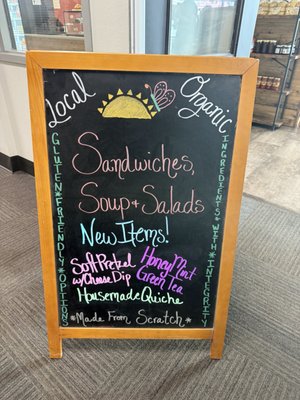 Local Organic
Organic
Local Organic
Gluten*Friendly*Options
Ingredients*with*Integrity
Sandwiches,
Soup & Salads
New Items!
Soft Pretzel
w/Cheese Dip
Honey Mint
Green Tea
Housemade Quiche
*Made From Scratch*